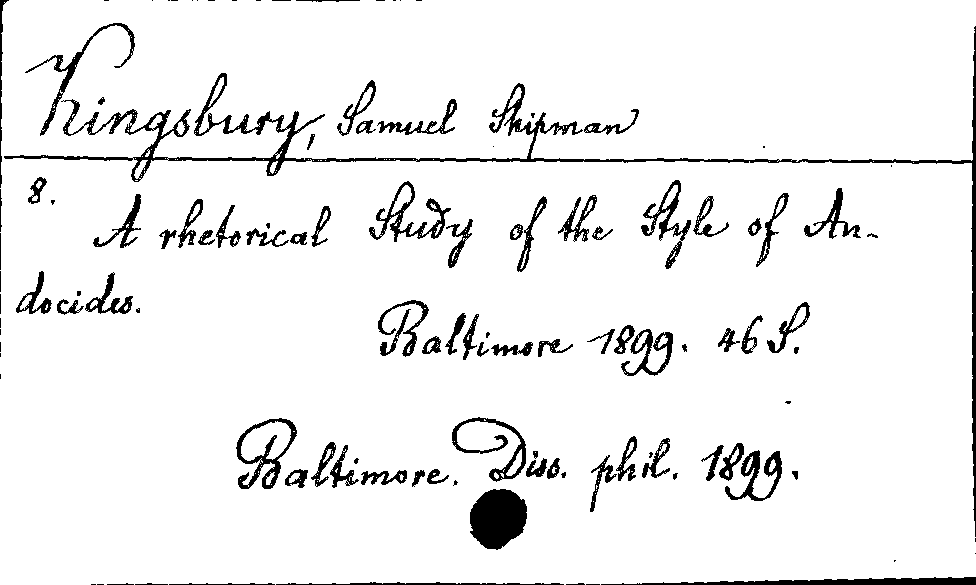 Kingsbury, Samuel Shipman
8.
A rhetorical Study of the Style of An-
docides.
Baltimore 1899. 46 S.
Baltimore. Diss. phil. 1899.